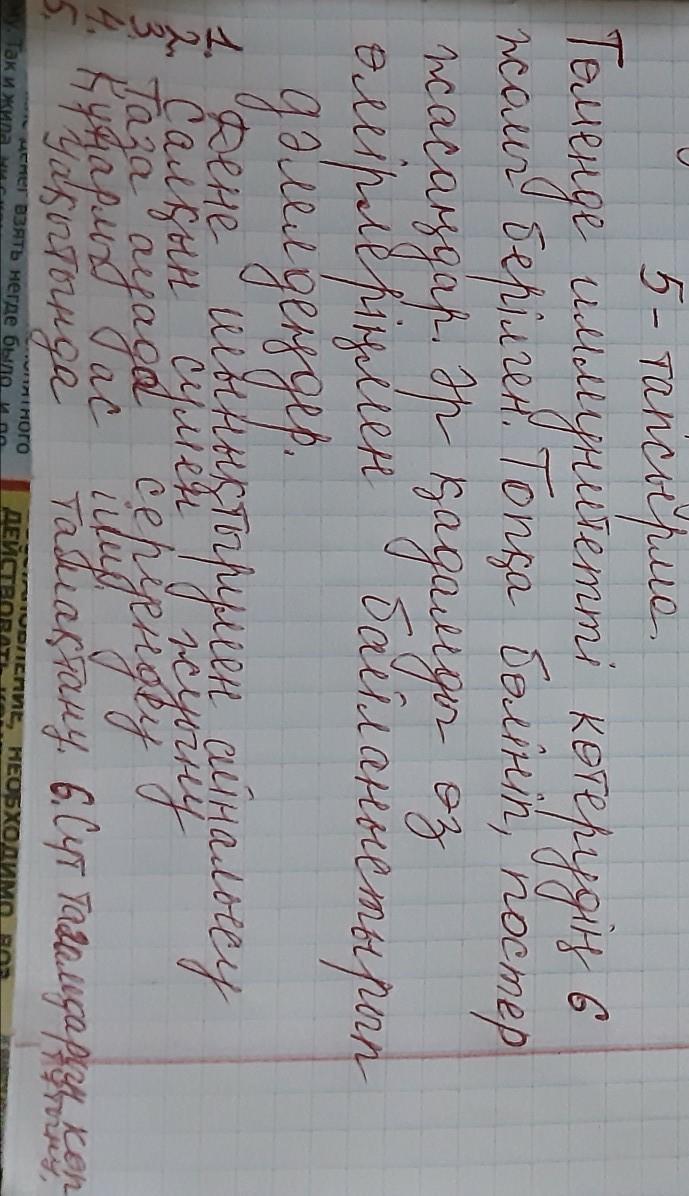 5-тапсырма.
Төменде иммунитетті көтерудің 6
жолы берілген. Топқа бөлініп, постер
жасаңдар. Әр қадамды өз
өмірлеріңмен байланыстырып
дәлелдеңдер.
1. Дене шынықтырумен айналысу
2. Салқын сумен жуыну
3. Таза ауада серуендеу
4. Құнарлы ас ішу.
5. Уақытында тамақтану. 6. Сүт тағамдарын көп
тұтыну.
взять негде было, и
Так и жила
ДЕЙСТВОВАТЬ
НЕОБХОДИМО